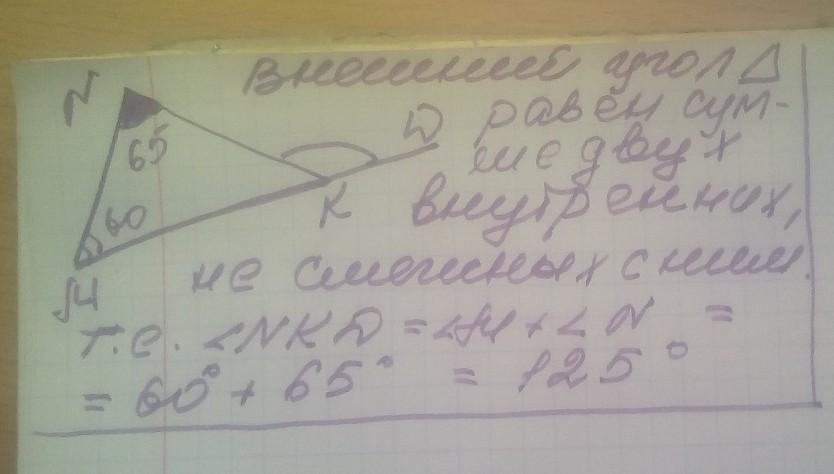 N
Внешний угол △
D равен сум-
65
ме двух
60
K внутренних,
M
не смежных с ним.
т.е. ∠NKD = ∠M + ∠N =
= 60° + 65° = 125°